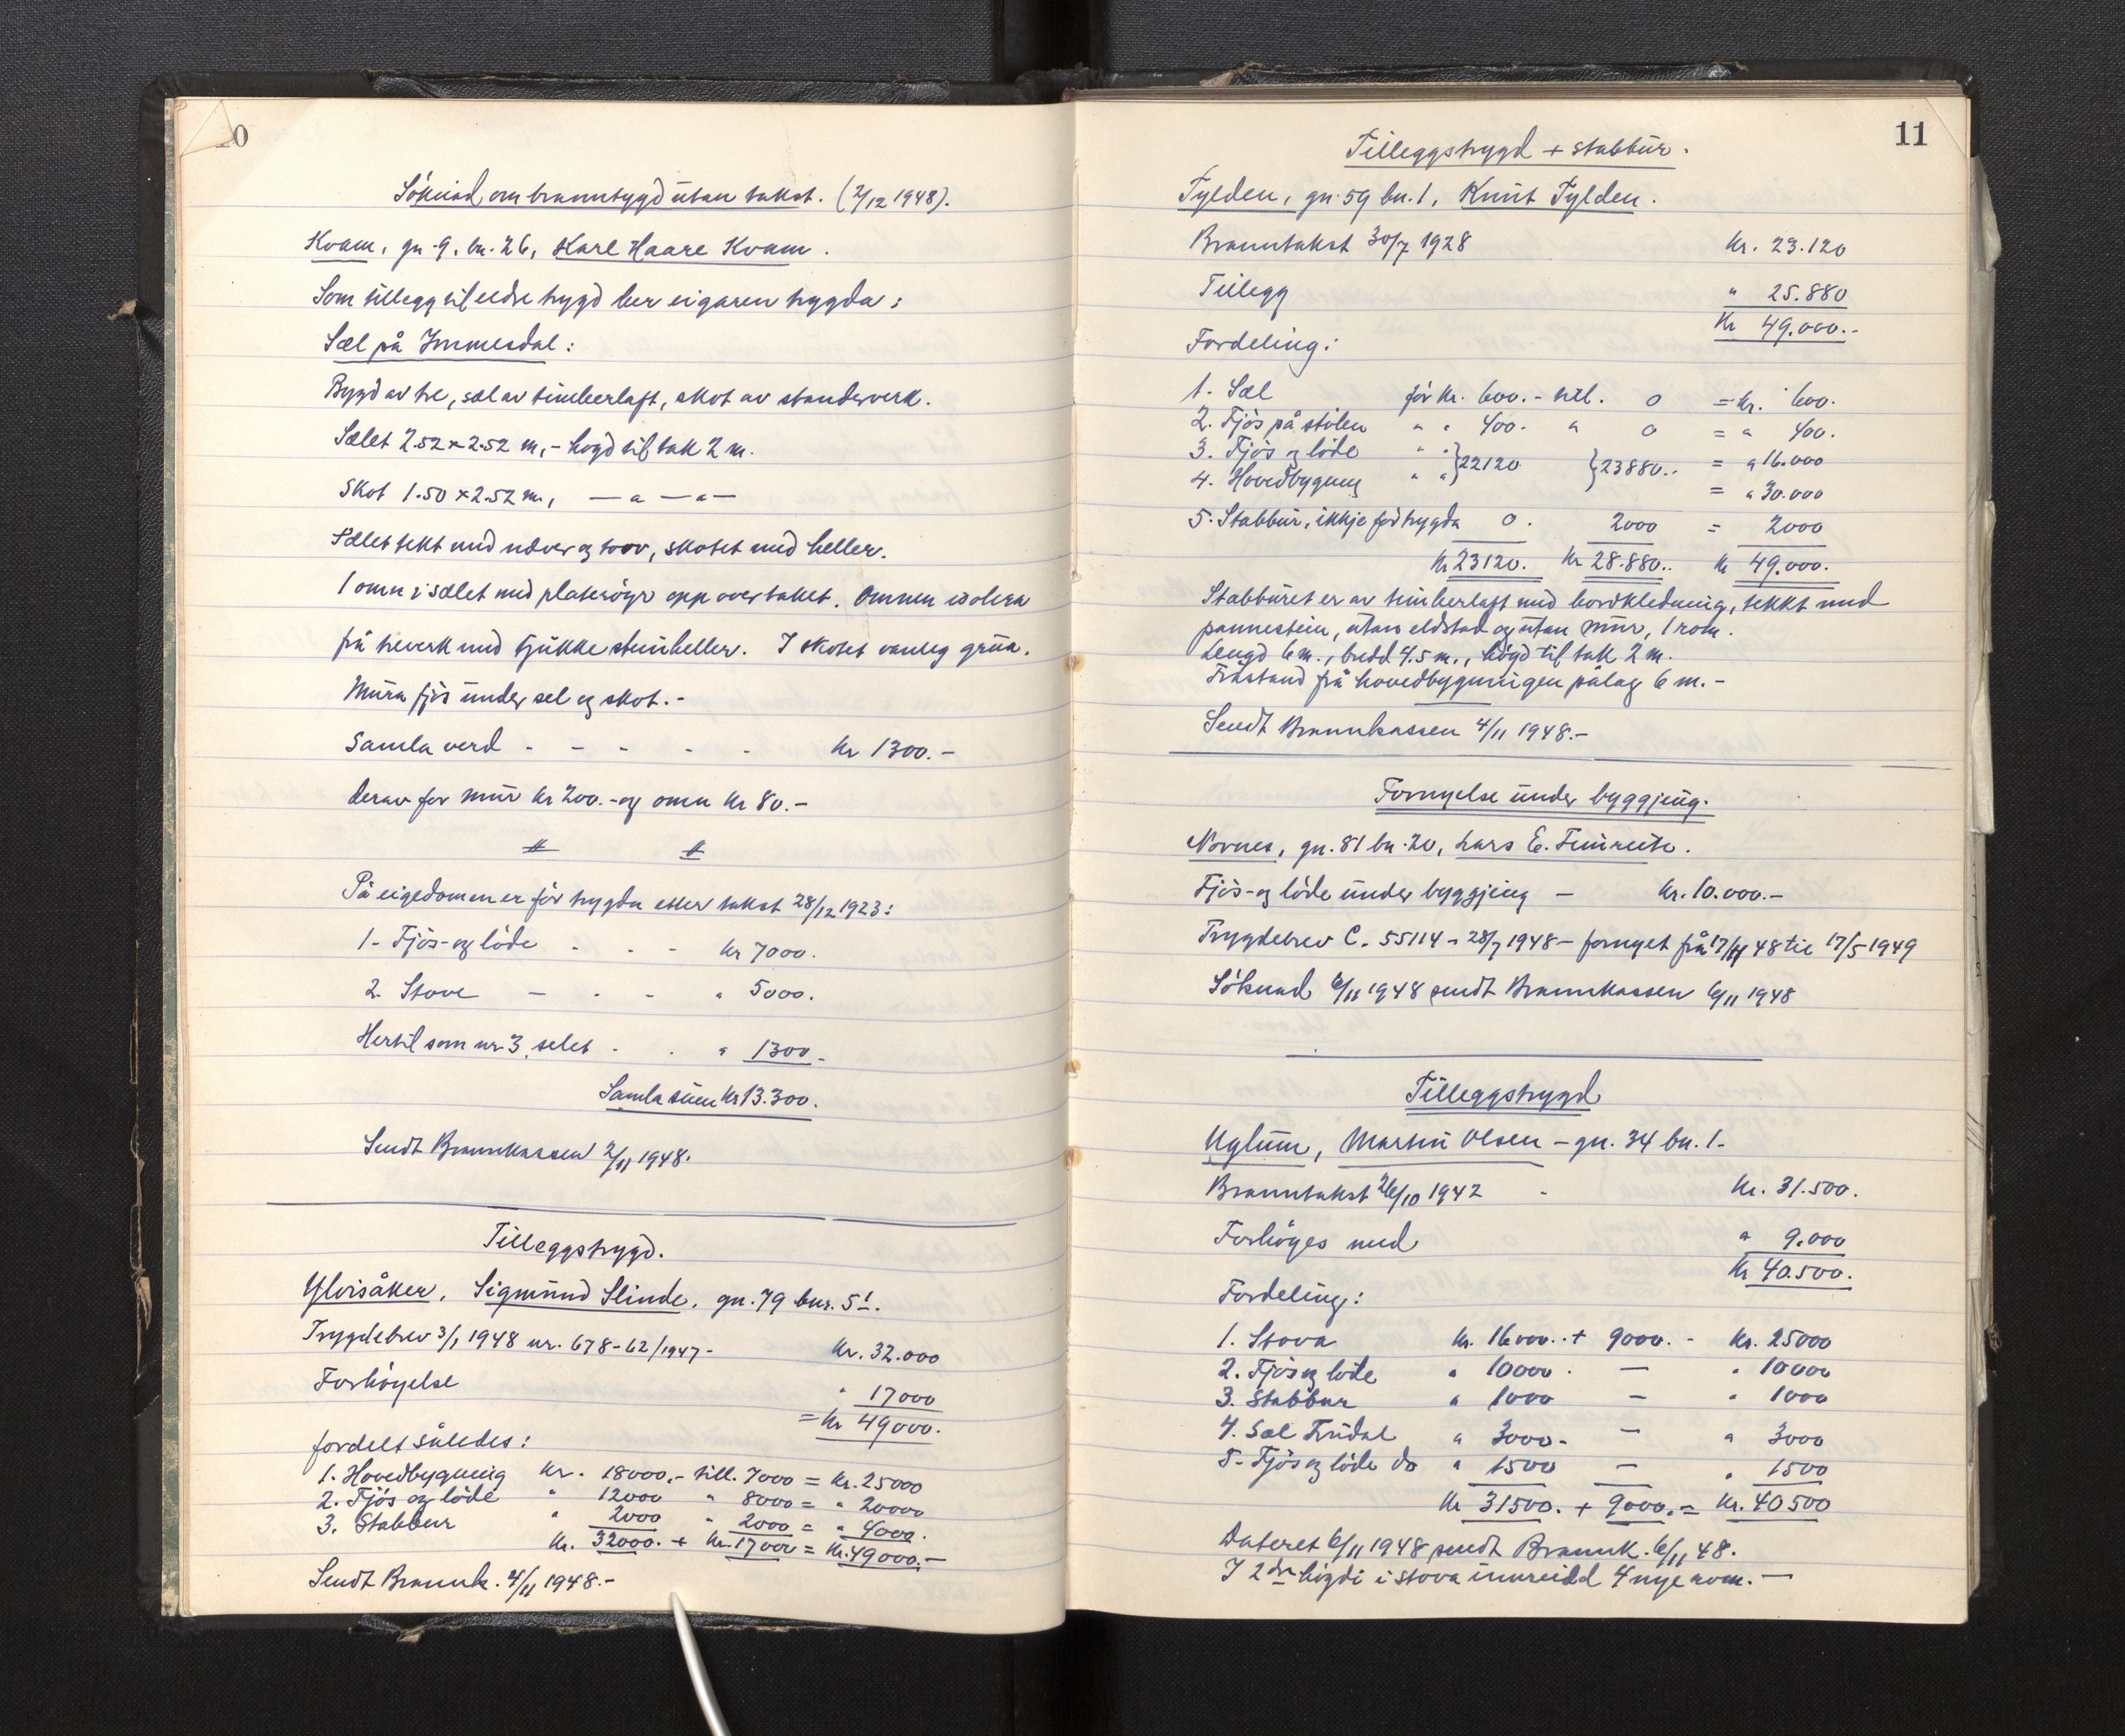 10
Söknad om branntrygd utan takst. (2/12 1948).
Kvam, gn. 9. bn. 26, Karl Haare Kvam.
Som tillegg til eldre trygd ber eigaren trygda:
Sæl på Immesdal:
Bygd av tre, sæl av timberlaft, skot av standerverk.
Sælet 2.52 x 2.52 m, - högd til tak 2 m.
Skot 1.50 x 2.52 m., — " — " —
Sælet tekt med næver og torv, skotet med heller.
1 omn i sælet med plateröyr opp over taket. Omnen isolera
frå treverk med tjukke steinheller. I skotet vanleg grüa.
Mura fjös under sel og skot. -
Samla verd - - - - - kr 1300.-
derav for mur kr 200.- og omn kr 80.-
På eigedomen er för trygda etter takst 28/12 1923:
1. Fjös- og löde - - - kr 7000.
2. Stove - - - " 5000.
Hertil som nr 3, selet - - " 1300.-
Samla sum kr 13.300.
Sendt Brannkassen 2/11 1948.
Tilleggstrygd.
Ylvisåker, Sigmund Slinde, gn. 79 bnr. 5!.
Trygdebrev 3/1 1948 nr. 678-62/1947- kr. 32.000
Forhöyelse " 17000
= kr 49000.
fordelt således:
1. Hovedbygning kr. 18000.- till. 7000 = kr. 25000
2. Fjös og löde " 12000 " 8000 = " 20000
3. Stabbur " 2000 " 2000 = " 4000.
kr. 32000. + kr. 17000 = kr. 49000.-
Sendt Brannk. 4/11 1948.-
11
Tilleggstrygd + stabbur.
Fylden, gn. 59 bn. 1, Knut Fylden.
Branntakst 30/7 1928 kr. 23.120
Tillegg " 25.880
Kr 49.000.-
Fordeling:
1. Sæl för kr. 600.- till. 0 = kr. 600.
2. Fjös på stölen " " 400. " 0 = " 400.
3. Fjös og löde " " }22120 }23880.. = " 16.000
4. Hovedbygning " " = " 30.000
5. Stabbur, ikkje för trygda 0. 2000 = 2000
Kr 23120. Kr 28.880.. Kr 49.000.
Stabburet er av timberlaft med bordkledning, tekkt med
pannestein, utan eldstad og utan mur, 1 rom.
Lengd 6 m., bredd 4.5 m., högd til tak 2 m.
Fråstand frå hovedbygningen pålag 6 m. -
Sendt Brannkassen 4/11 1948.-
Fornyelse under byggjing.
Nornes, gn. 81 bn. 20, Lars E. Fimreite.
Fjös- og löde under byggjing - kr. 10.000.-
Trygdebrev C. 55114 - 28/7 1948 - fornyet frå 17/11 48 til 17/5 1949
Söknad 6/11 1948 sendt Brannkassen 6/11 1948
Tilleggstrygd
Uglum, Martin Olsen - gn. 34 bn. 1-
Branntakst 26/10 1942 - kr. 31.500.
Forhöyes med " 9.000
Kr 40.500.
Fordeling:
1. Stova kr. 16000.. + 9000. - kr. 25000
2. Fjös og löde " 10000. — " 10000
3. Stabbur " 1000 — " 1000
4. Sæl Frudal " 3000- — " 3000
5- Fjös og löde do " 1500 — " 1500
Kr 31500. + 9000.- = Kr. 40500
Dateret 6/11 1948 sendt Brannk. 6/11 48.
I 2dre högdi i stova innreidd 4 nye rom. —